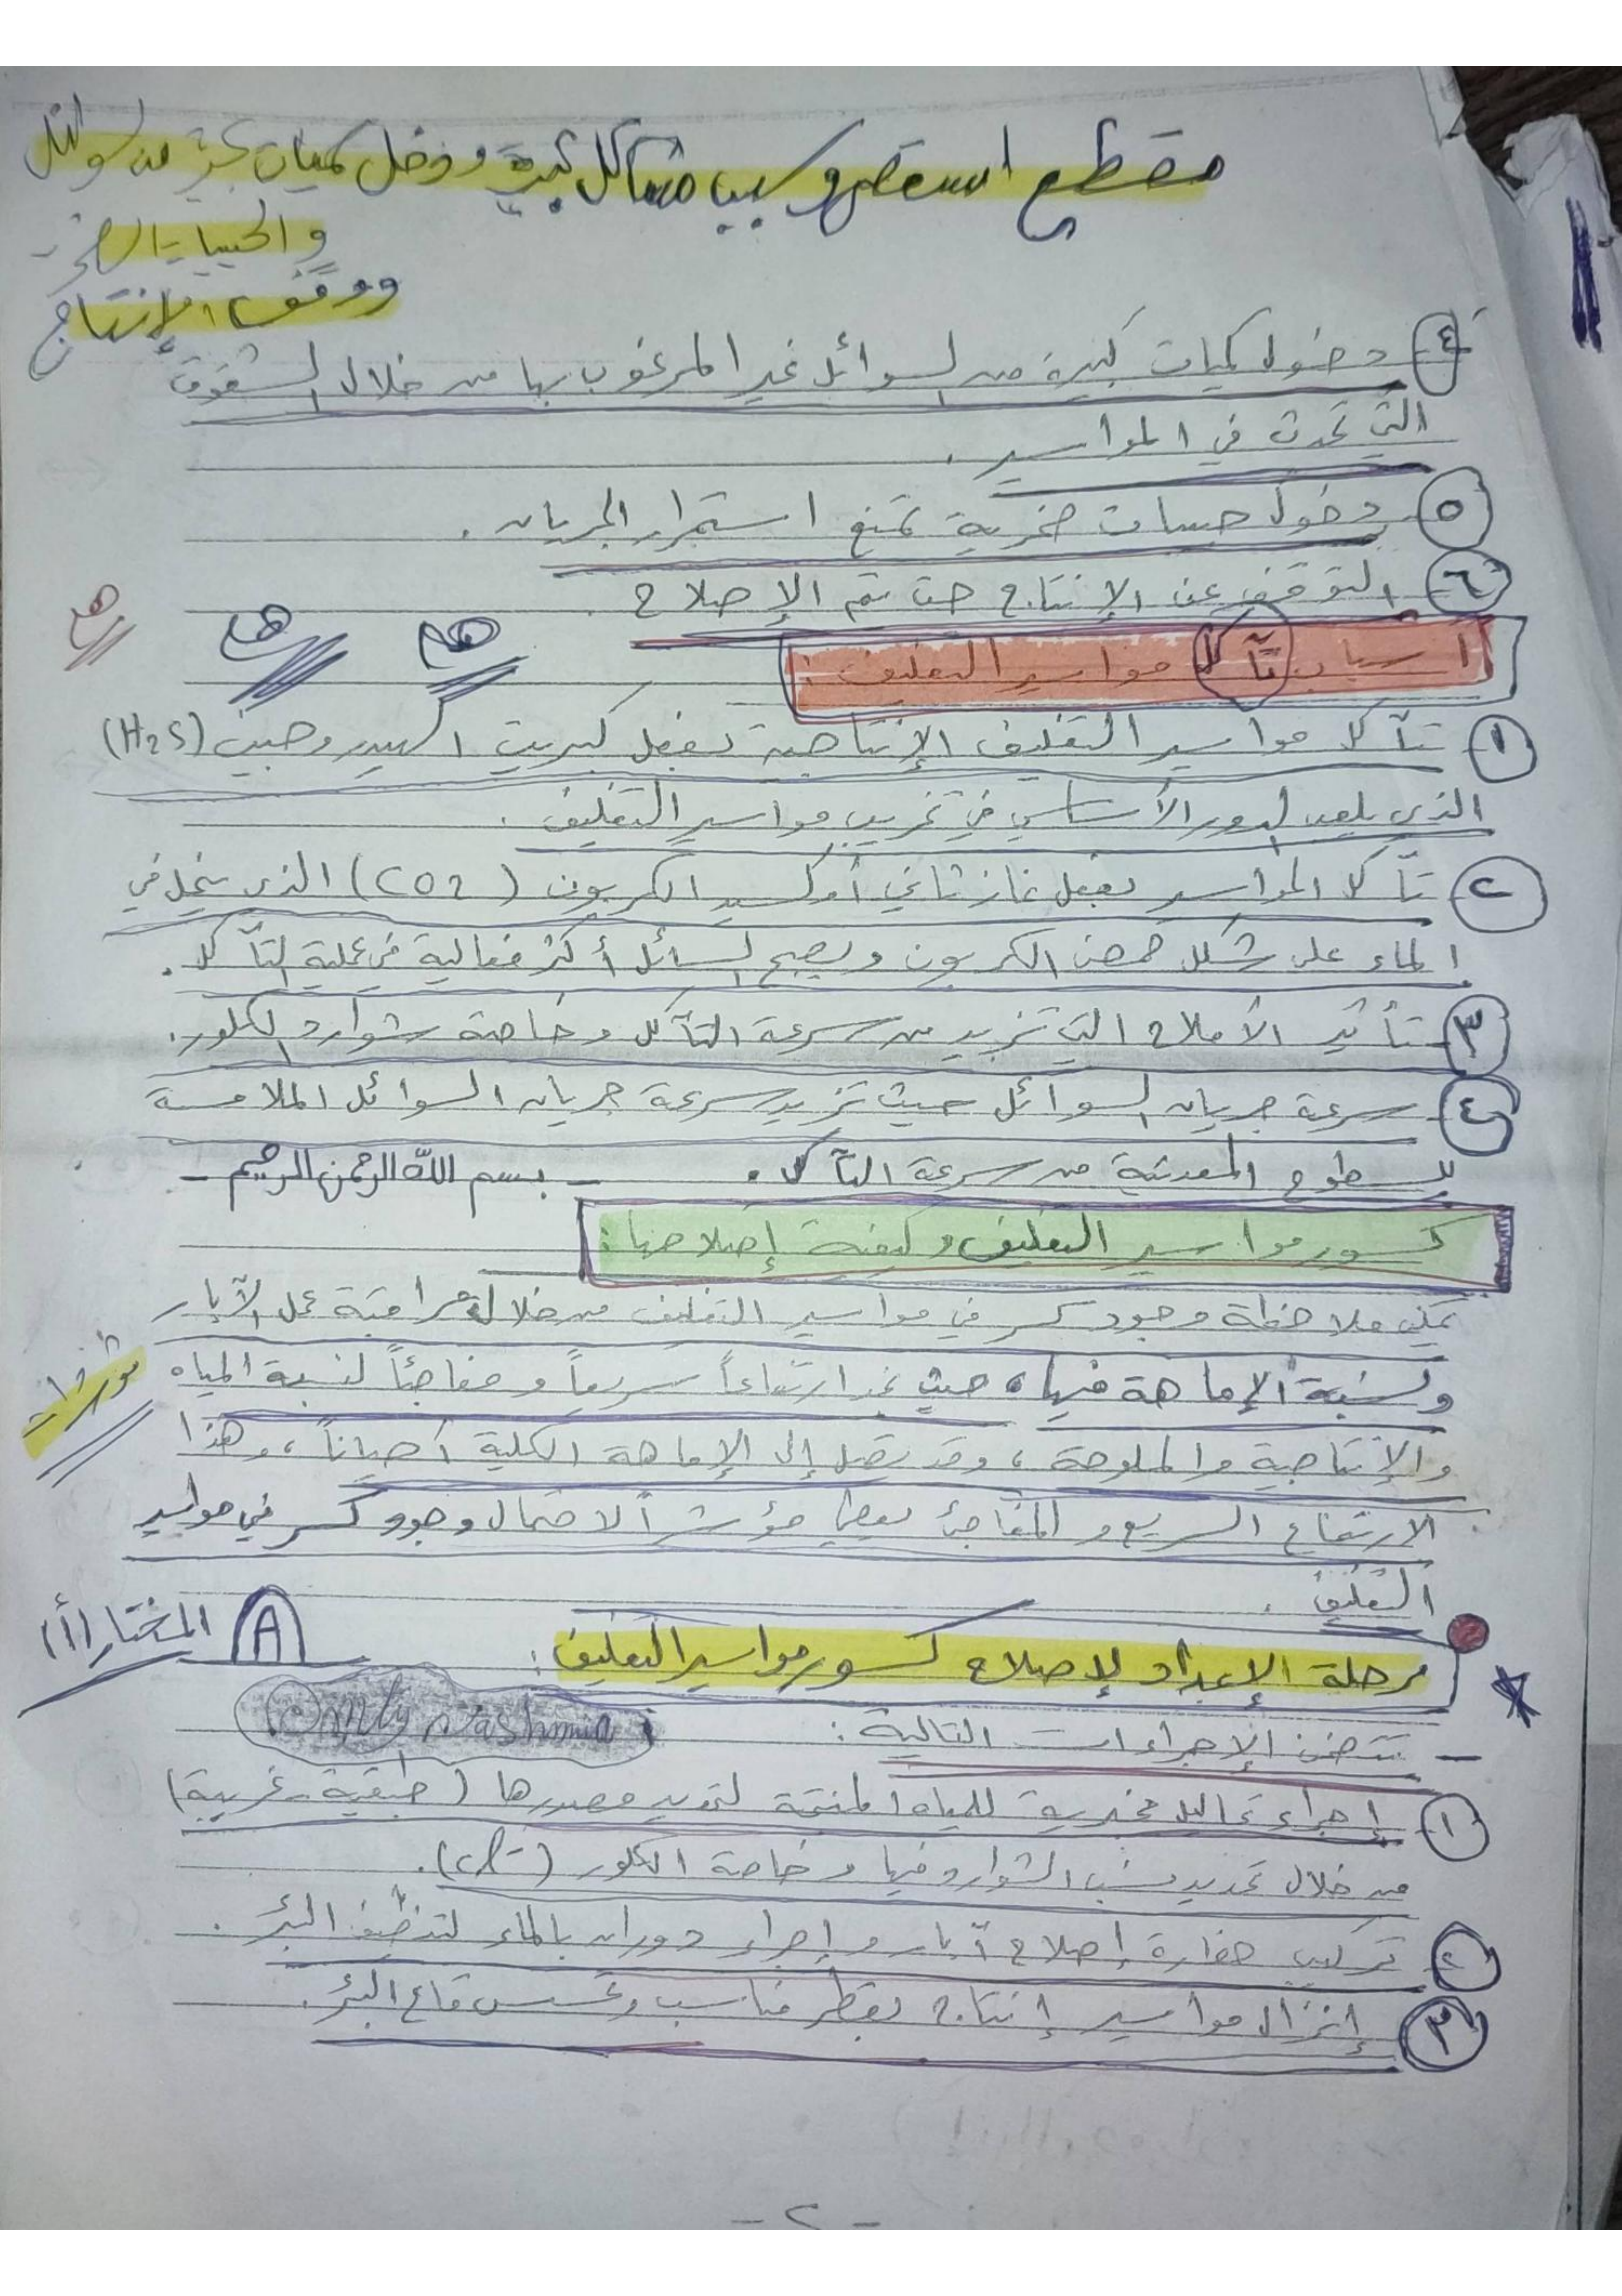 مقطع استعصاء وسبب مشاكل كبيرة ودخل كميات كبيرة من السوائل
والحبيبات الصخرية
ووقف الإنتاج
٤ دخول كميات كبيرة من السوائل غير المرغوب بها من خلال الشقوق
التي تحدث في المواسير .
٥ دخول حبيبات صخرية تمنع استمرار الجريان .
٦ التوقف عن الإنتاج حتى يتم الإصلاح .
أسباب تآكل مواسير التغليف :
هام هام هام
١ تآكل مواسير التغليف الإنتاجية بفعل كبريت الهيدروجين (H2S)
الذي يلعب الدور الأساسي في تخريب مواسير التغليف .
٢ تآكل المواسير بفعل غاز ثاني أوكسيد الكربون (CO2) الذي ينحل في
الماء على شكل حمض الكربون ويصبح السائل أكثر فعالية في عملية التآكل .
٣ تأثير الأملاح التي تزيد من سرعة التآكل وخاصة شوارد الكلور.
٤ سرعة جريان السوائل حيث تزيد سرعة جريان السوائل الملامسة
للسطوح المعدنية من سرعة التآكل .
- بسم الله الرحمن الرحيم -
كسور مواسير التغليف وكيفية إصلاحها :
يمكن ملاحظة وجود كسر في مواسير التغليف من خلال مراقبة عمل الآبار
ونسبة الإماهة فيها ، حيث نجد ارتفاعاً سريعاً ومفاجئاً لنسبة المياه
مؤشرات
والإنتاجية والملوحة ، وقد يصل إلى الإماهة الكلية أحياناً ، وهذا
الارتفاع السريع والمفاجئ يعطي مؤشراً لاحتمال وجود كسر في مواسير
التغليف .
المختار (أ) A
مرحلة الإعداد لإصلاح كسور مواسير التغليف :
- تتضمن الإجراءات التالية :
١ إجراء تحاليل مخبرية للمياه المنتجة لتحديد مصدرها (طبقية - غريبة)
من خلال تحديد نسب الشوارد فيها وخاصة الكلور (cl-).
٢ تركيب حفارة إصلاح آبار وإجراء دوران بالماء لتنظيف البئر .
٣ إنزال مواسير إنتاج بقطر مناسب وتحسس قاع البئر .
- ٢ -